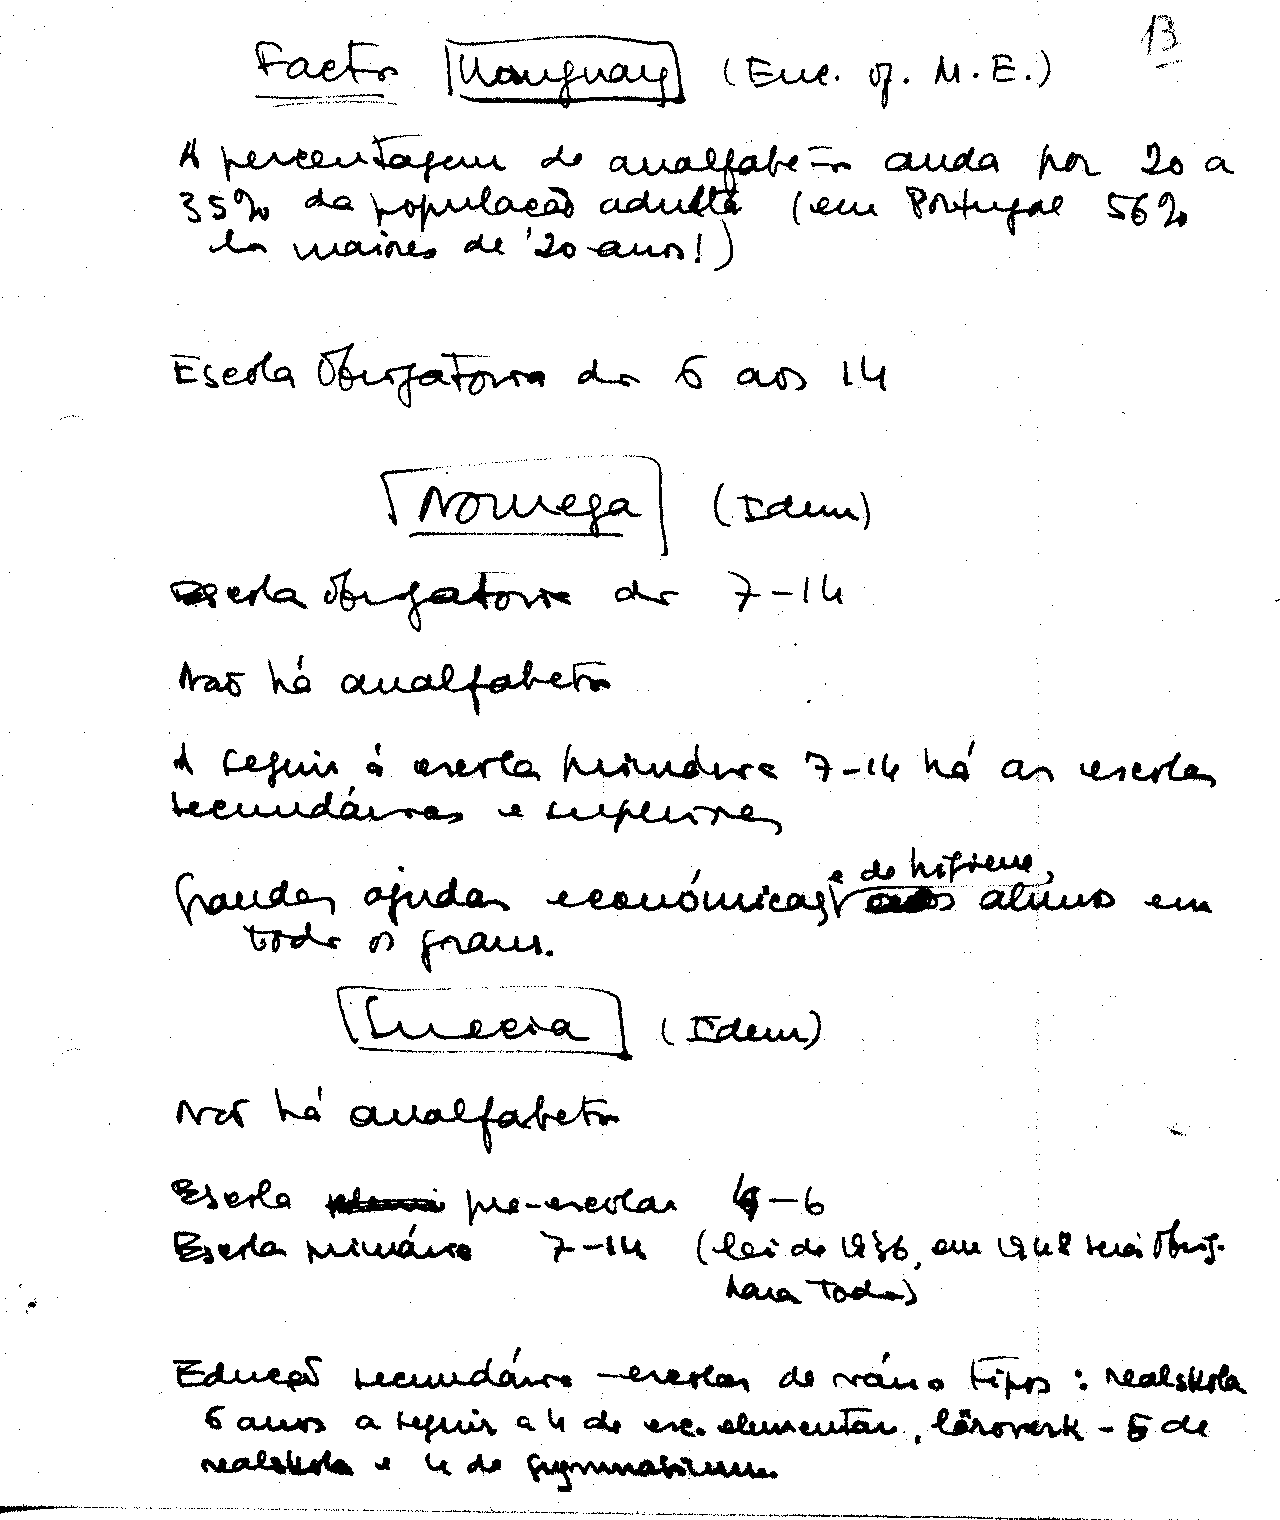 13
Factos Uruguay (Enc. of. M.E.)
A percentagem de analfabetos anda por 20 a
35% da população adulta (em Portugal 56%
dos maiores de 20 anos!)
Escola Obrigatória dos 6 aos 14
Noruega (Idem)
Escola Obrigatória dos 7-14
Não há analfabetos
A seguir á escola primária 7-14 há as escolas
secundárias e superiores
e de higiene,
Grandes ajudas económicas aos alunos em
todos os graus.
Suecia (Idem)
Não há analfabetos
Escola pre-escolar 4-6
Escola primária 7-14 (lei de 1936, em 1948 será Obrig.
para todos)
Educação secundária - escolas de vários tipos: realskola
6 anos a seguir a 4 de esc. elementar, läroverk - 5 de
realskola e 4 de gymnasium.